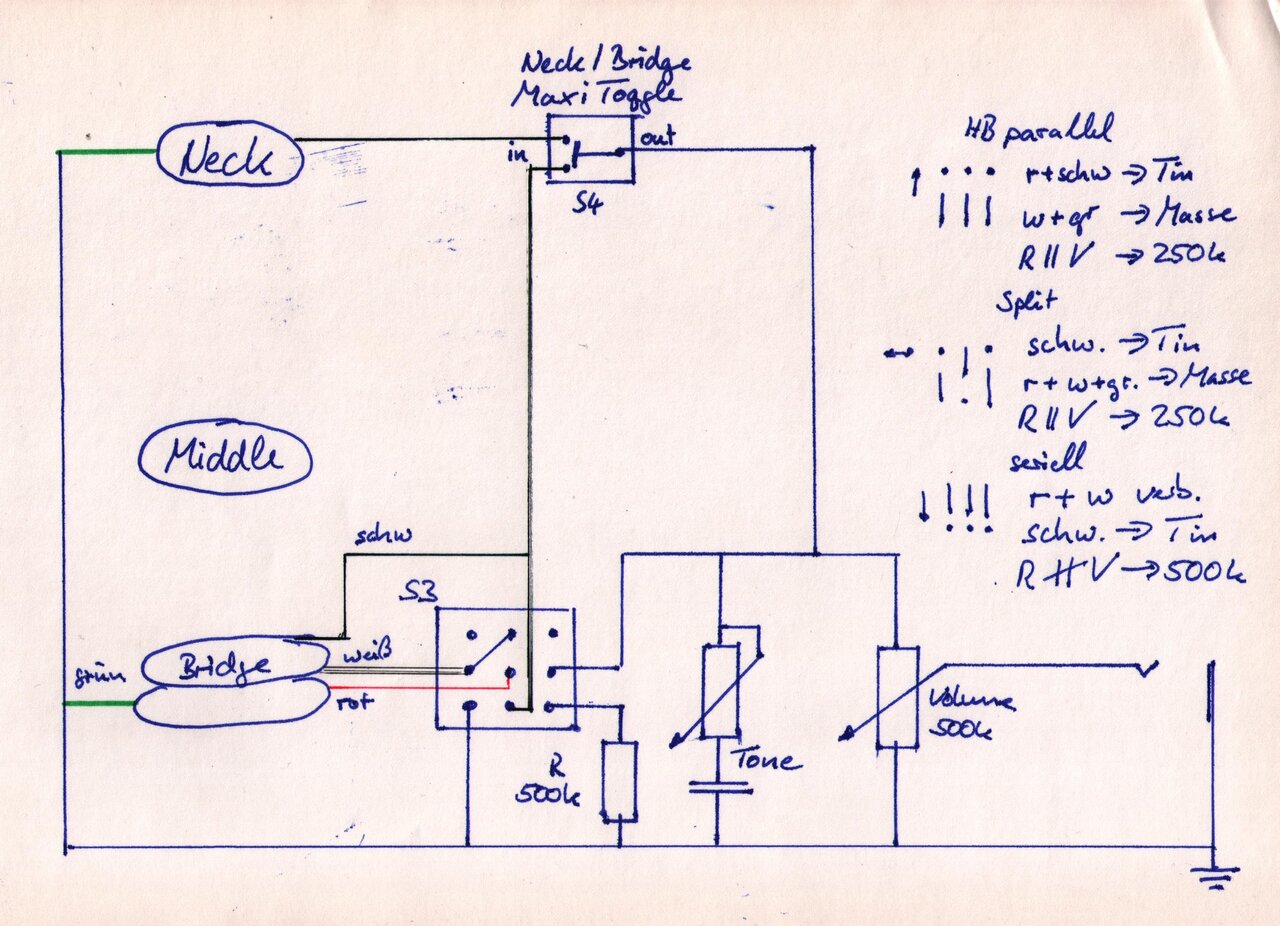 Neck / Bridge
Maxi Toggle
Neck
in
out
S4
Middle
schw
S3
grün
Bridge
weiß
rot
R
500k
Tone
Volume
500k
HB parallel
r+schw → Tin
w+gr → Masse
R || V → 250k
Split
schw. → Tin
r+w+gr. → Masse
R || V → 250k
seriell
r+w verb.
schw. → Tin
R ∦ V → 500k